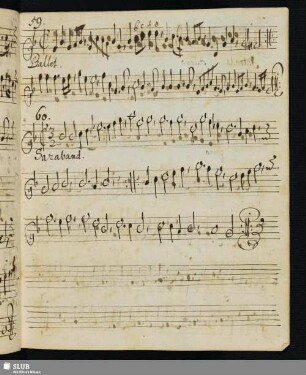 59.
Ballet.
60.
Saraband.
SLUB